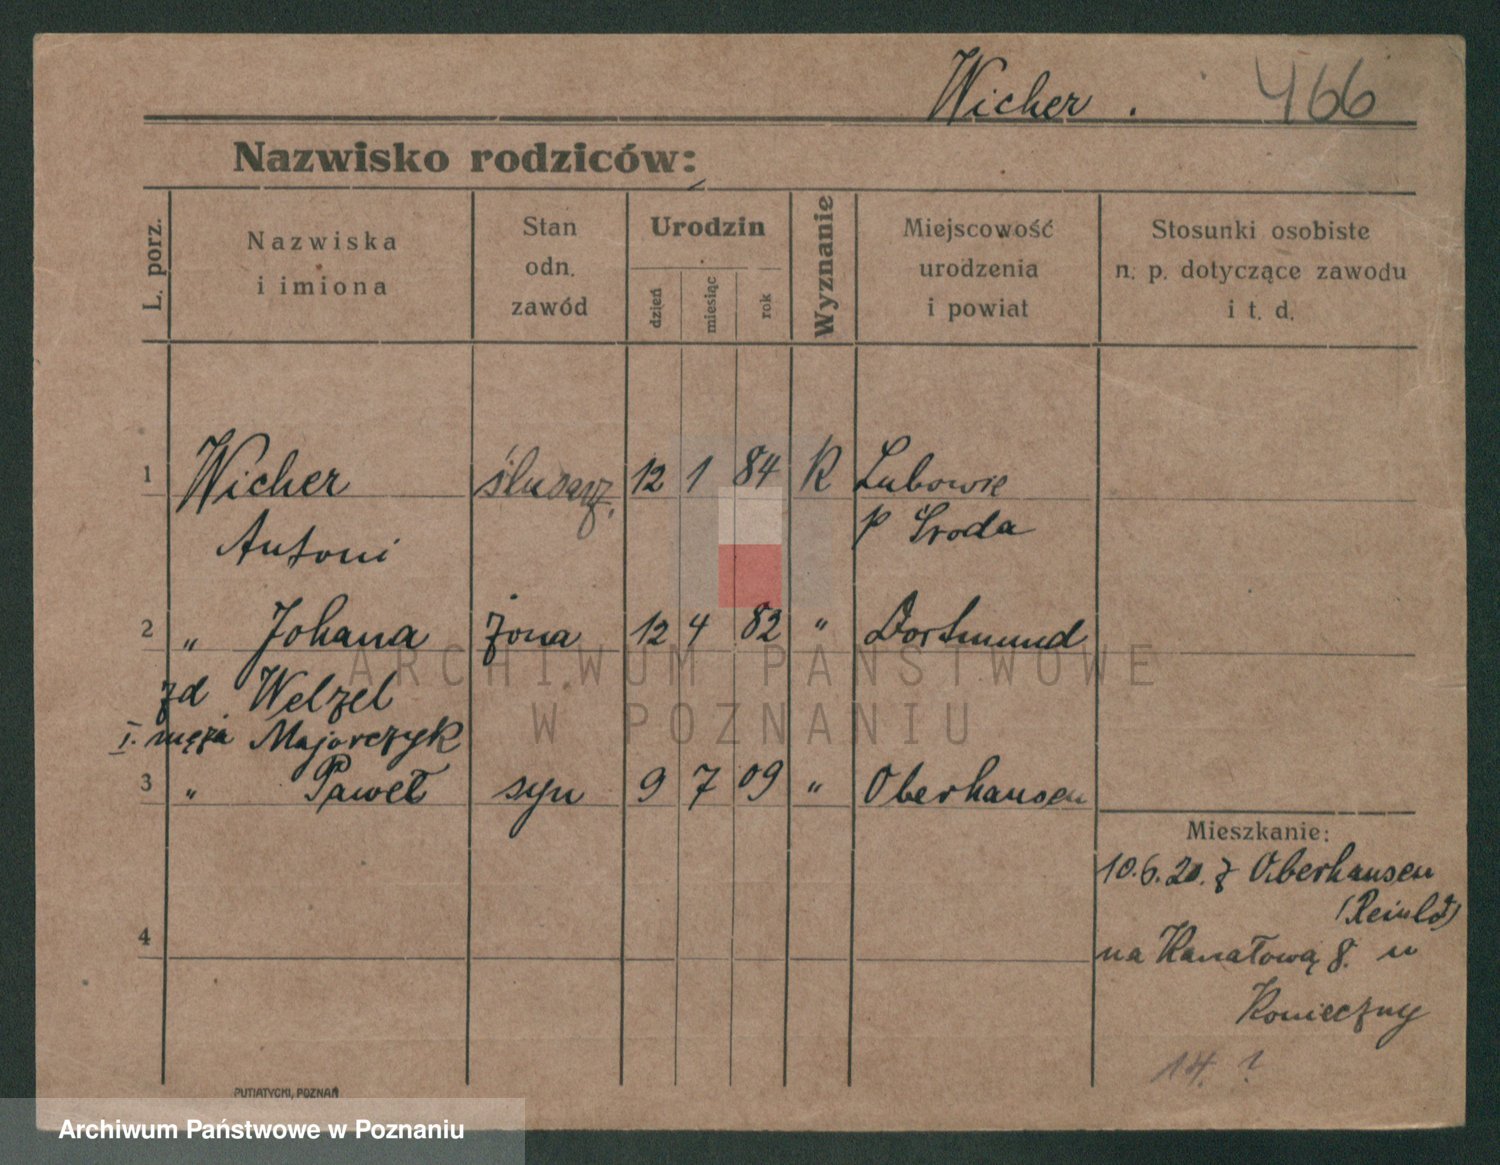 Wicher . 466
Nazwisko rodziców:
L. porz.
Nazwiska
i imiona
Stan
odn.
zawód
Urodzin
dzień
miesiąc
rok
Wyznanie
Miejscowość
urodzenia
i powiat
Stosunki osobiste
n. p. dotyczące zawodu
i t. d.
1 Wicher ślusarz. 12 1 84 R Lubowie
Antoni p Środa
2 „ Johana żona 12 4 82 „ Dortmund
zd Welzel
I. męża Majorczyk
3 „ Paweł syn 9 7 09 „ Oberhausen
Mieszkanie:
10.6.20. z Oberhausen
na Kanałową 8. u
Konieczny
4
14. ?
PUTIATYCKI, POZNAŃ
ARCHIWUM PAŃSTWOWE
W POZNANIU
Archiwum Państwowe w Poznaniu